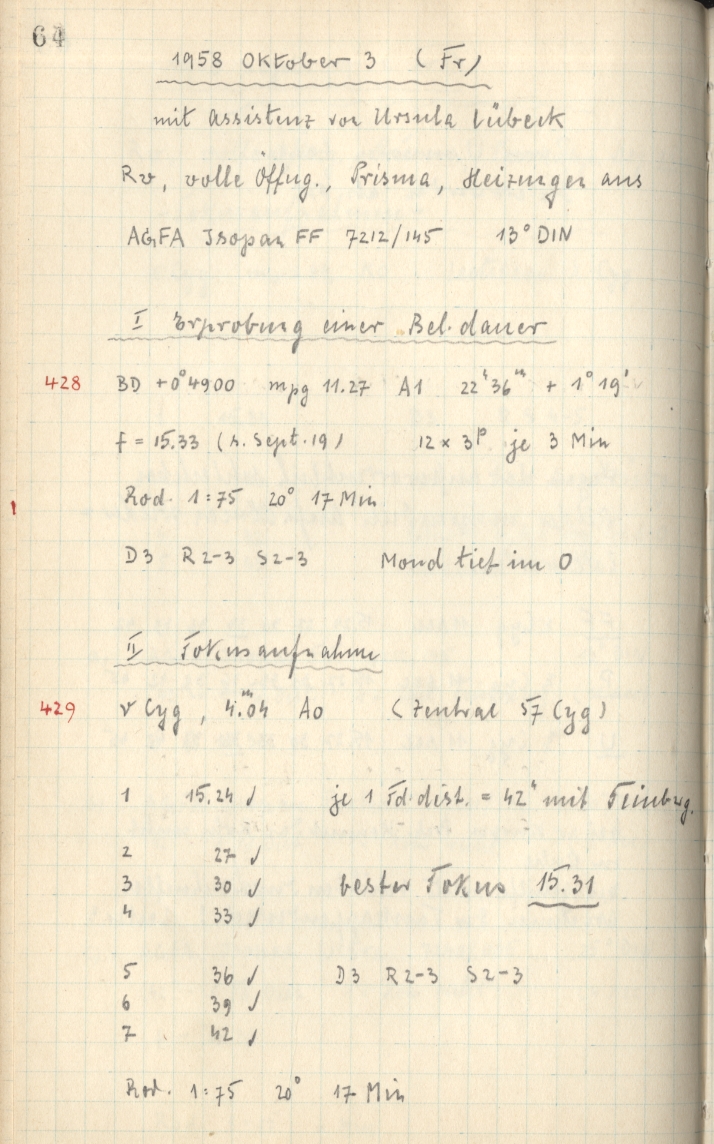 64
1958 Oktober 3 (Fr)
mit Assistenz von Ursula Lübeck
Rv, volle Öffng., Prisma, Heizungen aus
AGFA Isopan FF 7212/145 13° DIN
I Erprobung einer Bel.dauer
428 BD +0°4900 mpg 11.27 A1 22ʰ36ᵐ + 1° 19'
f = 15.33 (s. Sept. 19) 12 x 3ᵖ je 3 Min
Rod. 1:75 20° 17 Min
D3 R2-3 S2-3 Mond tief im O
II Fokusaufnahme
429 ν Cyg, 4ᵐ.04 A0 (Zentral 57 Cyg)
1 15.24 ✓ je 1 Fd.dist. = 42" mit Feinbwg.
2 27 ✓
3 30 ✓ bester Fokus 15.31
4 33 ✓
5 36 ✓ D3 R2-3 S2-3
6 39 ✓
7 42 ✓
Rod. 1:75 20° 17 Min